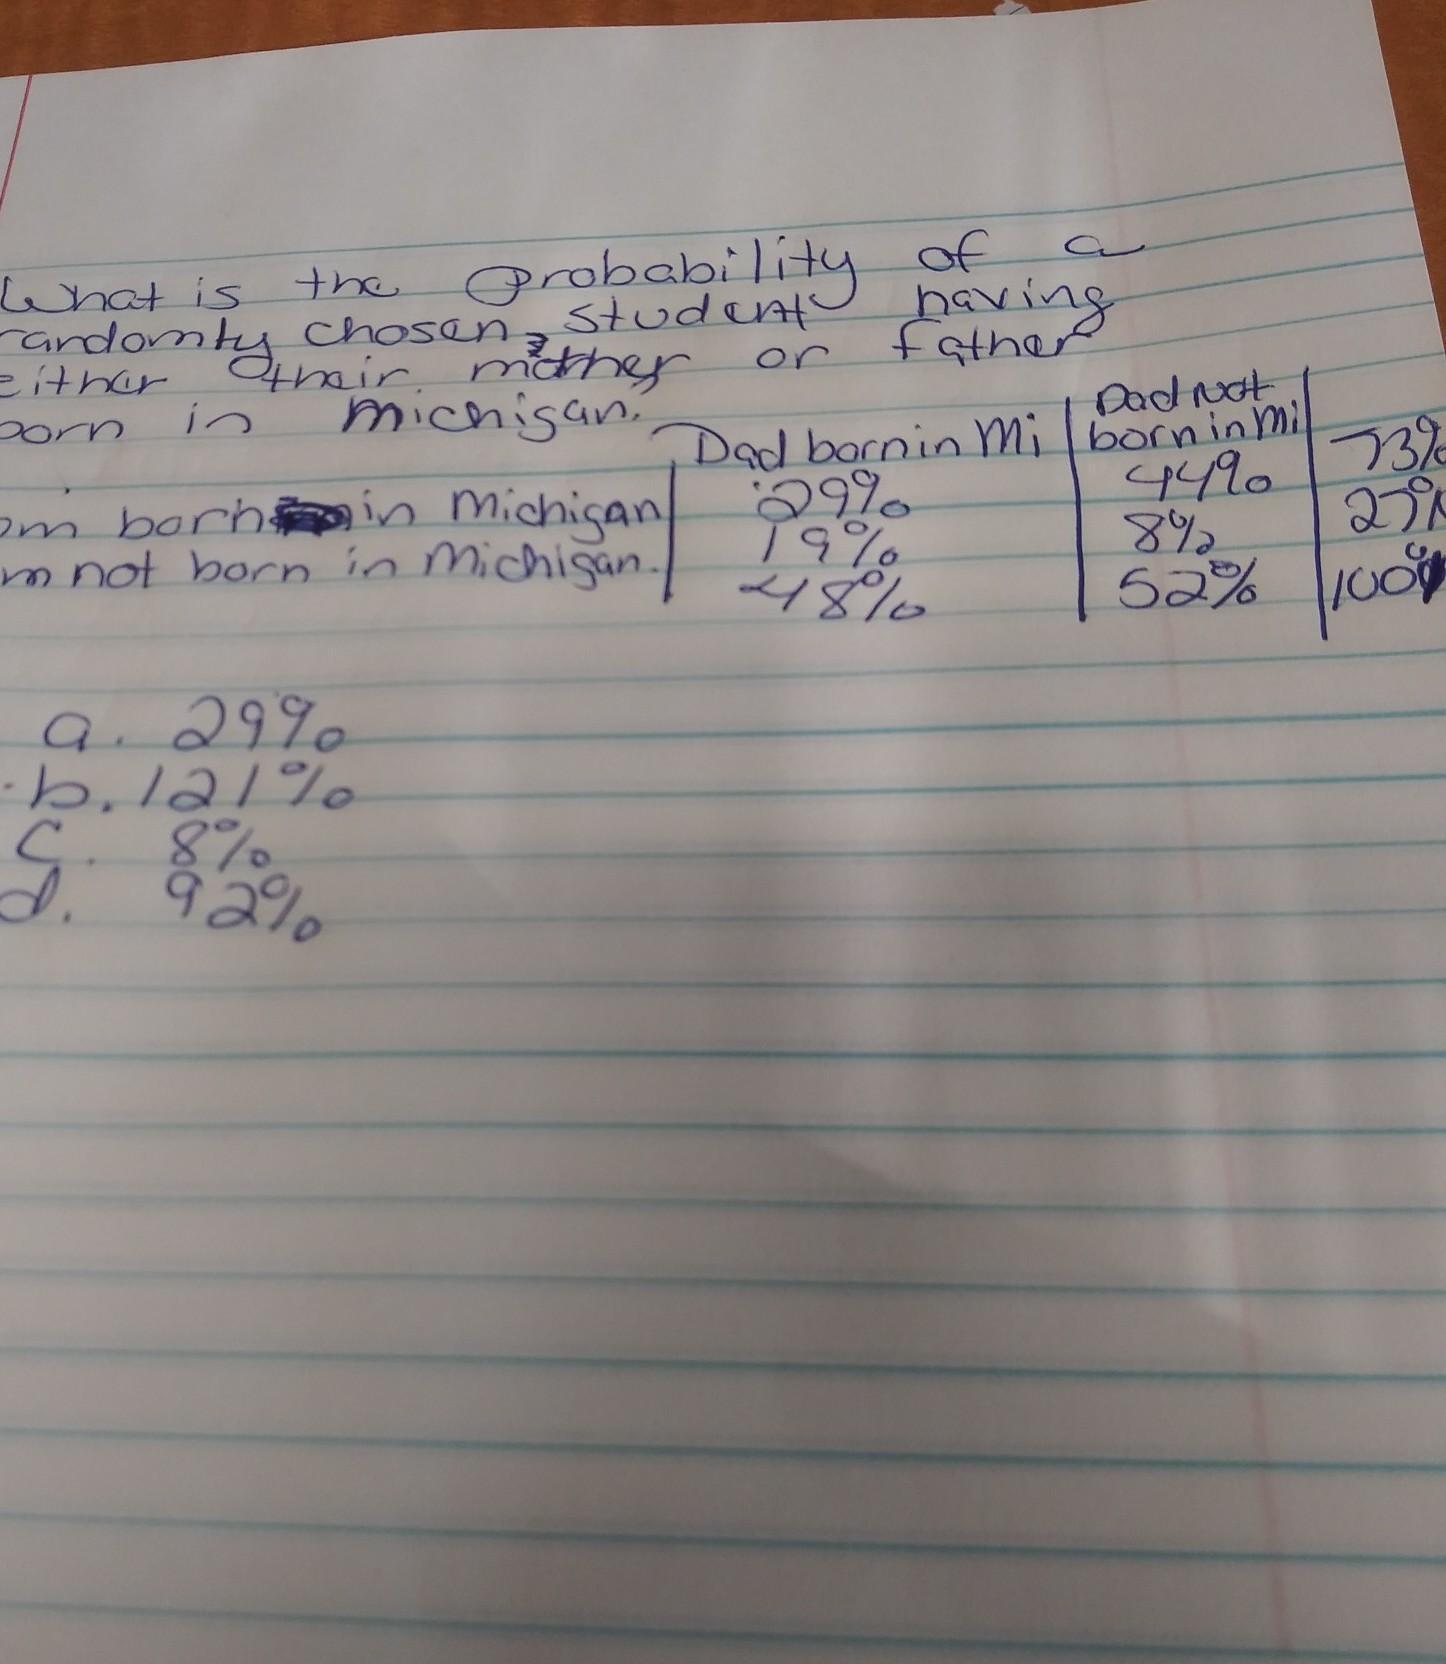 What is the Probability of a
randomly chosen student having
either their mother or father
born in Michigan.
Dad born in Mi | Dad not born in Mi | 73%
om born in Michigan | 29% | 44% | 27%
m not born in Michigan. | 19% | 8% | 100%
48% | 52%
a. 29%
b. 121%
c. 8%
d. 92%